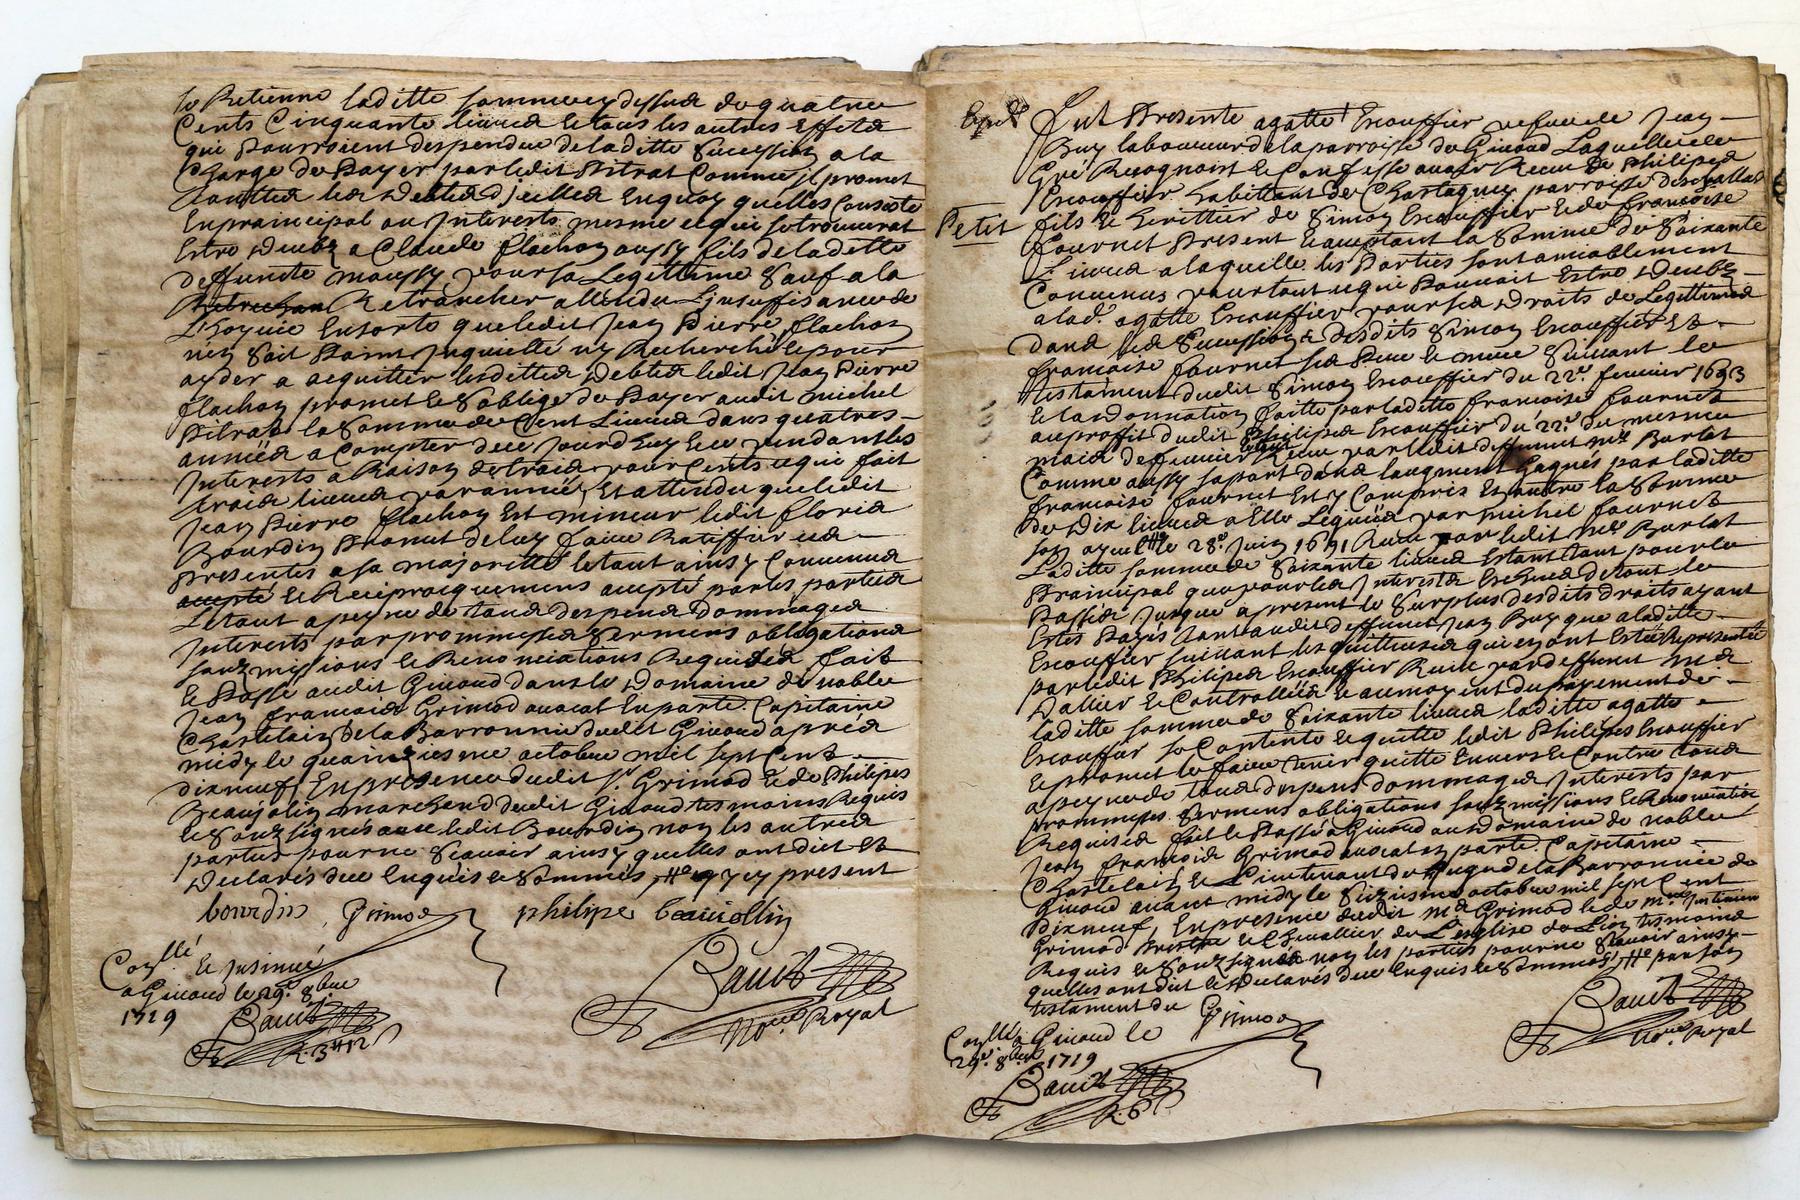 se Retienne laditte sommecy dessus de quatre
Cents Cinquante livres et tous les autres Effets
qui Pourroient despendre de laditte succession a la
Charge de Payer par ledit Pitrat Comme jl promet
les Debtes d'jcelles En quoy quelles Consiste
En principal ou Jnterests mesme ce qui se trouvera
Estre deubz a Claude flachon aussy fils de laditte
deffuncte moussy pour sa Legittime sauf a la
Retrancher attendu L'jnsuffisance de
L'hoyrie En sorte que ledit Jean Pierre flachon
n'en soit Point Jnquietté ny Recherché Et pour
ayder a acquitter lesdittes debtes ledit Jean Pierre
flachon promet et s'oblige de Payer audit michel
Pitrat la somme de Cent Livres dans quatres
années a Compter de ce Jourd'huy Et ce pendant les
Jnterests a Raison de trois pour Cents ce qui fait
trois livres par année, Et attendu que ledit
Jean Pierre flachon Est mineur ledit floris
Bourdin Promet de luy faire Ratiffier ces
presentes a sa majorité le tout ainsy Convenus
accepté et Reciproquemens accepté par les parties
Le tout a peyne de tous despens Dommages
Jnterests par prommesses sermens obligations
souzmissions et Renonciations Requises fait
et Passé audit Giraud dans le Domaine de noble
Jean francois Grimod avocat En parte. Capitaine
Chastelain de la Barronnie dudit Giraud apres
midy le quinziesme octobre mil sept Cent
dixneuf, En presence dudit Sr. Grimod et de Philipes
Beaujolin marchand dudit Giraud tesmoins Requis
et souzsignés avec ledit Bourdin non les autres
parties pour ne scavoir ainsy quelles ont dict Et
declarés de ce Enquis et Sommés,
bourdin, Grimod philipe beaujollin
Con̄llé et Jnsinué
a Giraud le 29e. 8bre
1719
Not.re Royal
R. 3tt 12s
Expd.
Fut Presente agatte Escouffier vefve de Jean
Buy laboureur de la parroisse de Giraud Laquelle de
Gré Recognoist et Confesse avoir Receu de Philipes
Escouffier habittant de Chastagnay parroisse
Petit
fils et herittier de Simon Escouffier et de francoise
fournet Present et acceptant la Somme de Soixante
Livres a laquelle les Parties sont amiablement
Convenus pour tout ce qui Pouvoit Estre Deubz
a lad. agatte Escouffier pour ses Droits de Legittimes
dans les Successions desdits Simon Escouffier Et
francoise fournet ses Pere et mere Suivant le
testament dudit Simon Escouffier du 22e. fevrier 1693
et la donnation faitte par laditte francoise fournet
au proffit dudit Philipes Escouffier du 22e. du mesme
mois de fevrier Receu par ledit deffunct me. Barlet
Comme aussy sa part dans l'augment Gagnés par laditte
francoise fournet Et y Compris Et outre la Somme
de Dix livres a Elle Leguée par michel fournet
son ayeul le 28e. Juin 1691 Receu par ledit me. Barlet
Laditte somme de Soixante livres Estant tant pour le
Principal que pour les Jnterests Escheus de tout le
Passé Jusque a present le surplus desdits droits ayant
Estés Payés tant audit deffunct Jean Buy que a laditte
Escouffier suivant les quittances qui en ont Estée Representée
par ledit Philipes Escouffier Receu par deffunct me
Dallier et Controllées Et au moyent du payement de
laditte somme de Soixante livres laditte agatte
Escouffier se Contente et quitte ledit Philipes Escouffier
et promet le faire tenir quitte Envers et Contre tous
a peyne de tous despens dommages Jnterests par
prommesses. sermens obligations souzmissions et Renonciations
Requises fait et Passé a Giraud au domaine de noble
Jean francois Grimod avocat en parte. Capitaine
Chastelain et Lieutenant de Juge de la Barronnie de
Giraud avant midy le Seiziesme octobre mil sept Cent
dixneuf, En presence dudit me Grimod et de
Grimod Prestre et Chevallier de L'eglise de Lion tesmoins
Requis et Souzsignés non les parties pour ne scavoir ainsy
quelles ont dict et declarés de ce Enquis et Sommés, par son
testament du Grimod
Con̄llé a Giraud le
29e. 8bre 1719
Not.re Royal